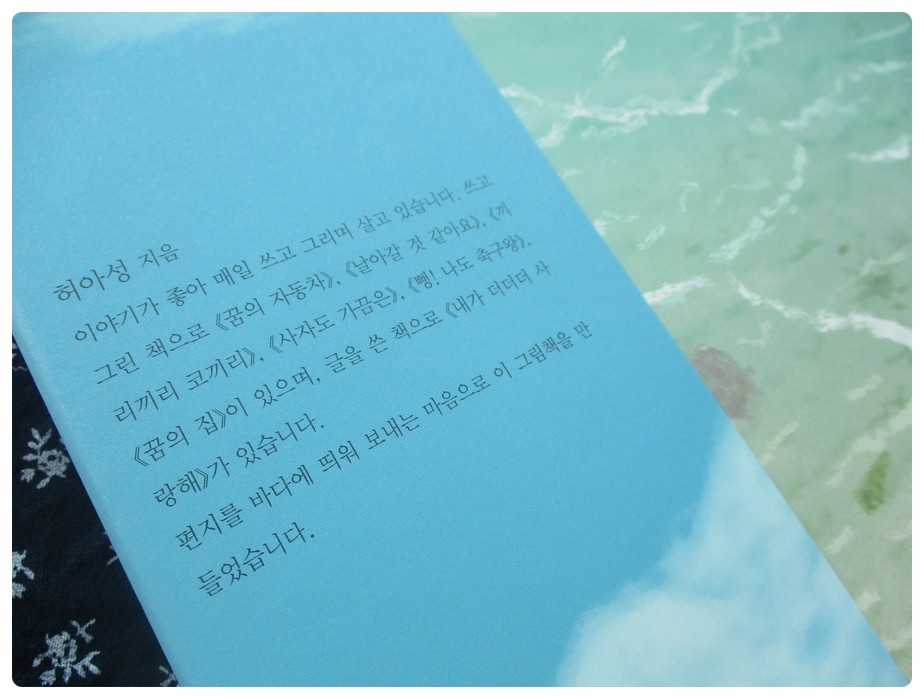 허아성 지음
이야기가 좋아 매일 쓰고 그리며 살고 있습니다. 쓰고
그린 책으로 《꿈의 자동차》, 《날아갈 것 같아요》, 《끼
리끼리 코끼리》, 《사자도 가끔은》, 《뻥! 나도 축구왕》,
《꿈의 집》이 있으며, 글을 쓴 책으로 《내가 더더더 사
랑해》가 있습니다.
편지를 바다에 띄워 보내는 마음으로 이 그림책을 만
들었습니다.